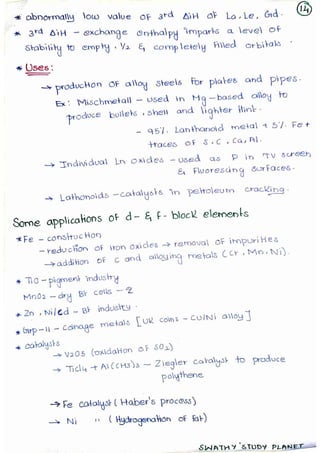 14
* abnormally low value of 3rd ΔiH of La, Le, Gd.
* 3rd ΔiH - exchange enthalpy imparts a level of
stability to empty, 1/2 & completely filled orbitals.
* Uses:
→ production of alloy steels for plates and pipes.
Ex: Mischmetall - used in Mg-based alloy to
produce bullets, shell and lighter flint.
- 95% Lanthanoid metal + 5% Fe +
traces of S, C, Ca, Al.
→ Individual Ln oxides - used as P in TV screen
& Fluorescing surfaces.
→ Lathonoids - catalysts in petroleum cracking.
Some applications of d- & f- block elements
* Fe - construction
- reduction of iron oxides → removal of impurities
→ addition of C and alloying metals (Cr, Mn, Ni).
* TiO - pigment industry
MnO2 - dry Bt cells - 2
* Zn, Ni/Cd - Bt industry.
* Grp-11 - coinage metals [UK coins - Cu/Ni alloy]
* catalysts
→ V2O5 (oxidation of SO2)
→ TiCl4 + Al(CH3)3 - Ziegler catalyst to produce
polythene
→ Fe catalyst (Haber's process)
→ Ni " (Hydrogenation of fat)
SWATHY'STUDY PLANET